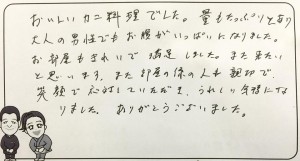 おいしいカニ料理でした。量もたっぷりとあり
大人の男性でもお腹がいっぱいになりました。
お部屋もきれいで満足しました。また来たい
と思います。また部屋の係の人も親切で、
笑顔で応対していただき、うれしい気持にな
りました。ありがとうございました。